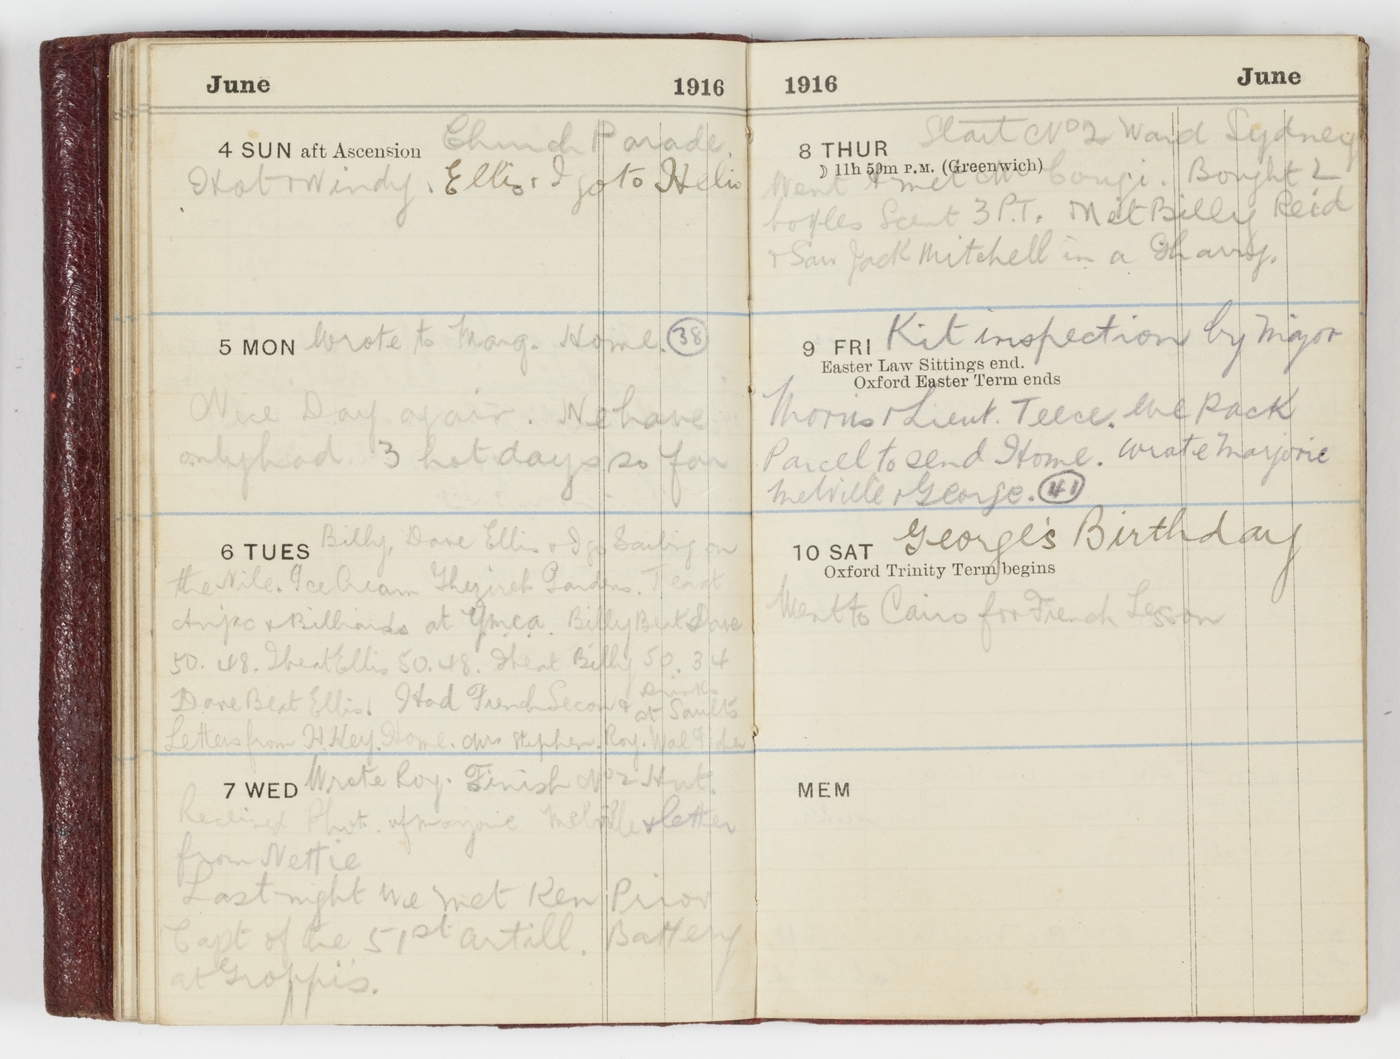 June 1916
4 SUN aft Ascension Church Parade.
Hot & Windy. Ellis & I go to Helio
5 MON Wrote to Marg. Home. 38
Nice Day again. We have
only had 3 hot days so far
6 TUES Billy, Dave Ellis & I go Sailing on
the Nile. Ice Cream Ghezireh Gardens. Tea at
& Billiards at Ymca. Billy Beat Dave
50. 48. I beat Ellis 50.48. I beat Billy 50. 34
Dave Beat Ellis. Had French Lesson & Drinks
at Saults
Letters from H. Key. Home. Mrs Stephen. Roy.
7 WED Wrote Roy. Finish No 2 Hut.
Received Phot. of Marjorie Melville & letter
from Nettie
Last night we met Ken Prior
Capt of the 51st Artill. Battery
at Groppi's.
1916 June
8 THUR Start No 2 Ward Sydney
☽ 11h 59m P.M. (Greenwich)
Went & met Mc . Bought 2
bottles Scent 3 P.T. Met Billy Reid
& Saw Jack Mitchell in a Gharry.
9 FRI Kit inspection by Major
Easter Law Sittings end.
Oxford Easter Term ends
Morris & Lieut. Teece. We Pack
Parcel to send Home. Wrote Marjorie
Melville & George. 41
10 SAT George's Birthday
Oxford Trinity Term begins
Went to Cairo for French Lesson
MEM